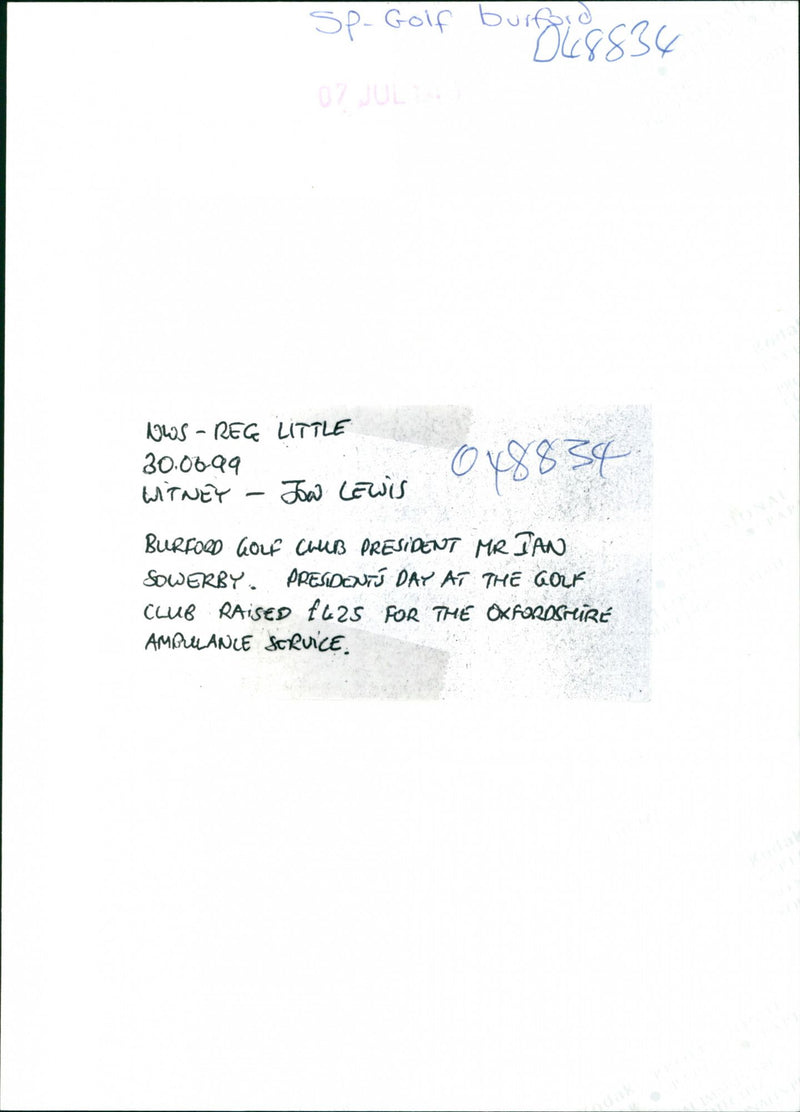 Sp-Golf burford
048834
07 JUL
NWS - REG LITTLE
30.06.99
048834
WITNEY - JON LEWIS
BURFORD GOLF CLUB PRESIDENT MR IAN
SOWERBY. PRESIDENT'S DAY AT THE GOLF
CLUB RAISED £425 FOR THE OXFORDSHIRE
AMBULANCE SERVICE.
Kodak
Kodak
Kodak